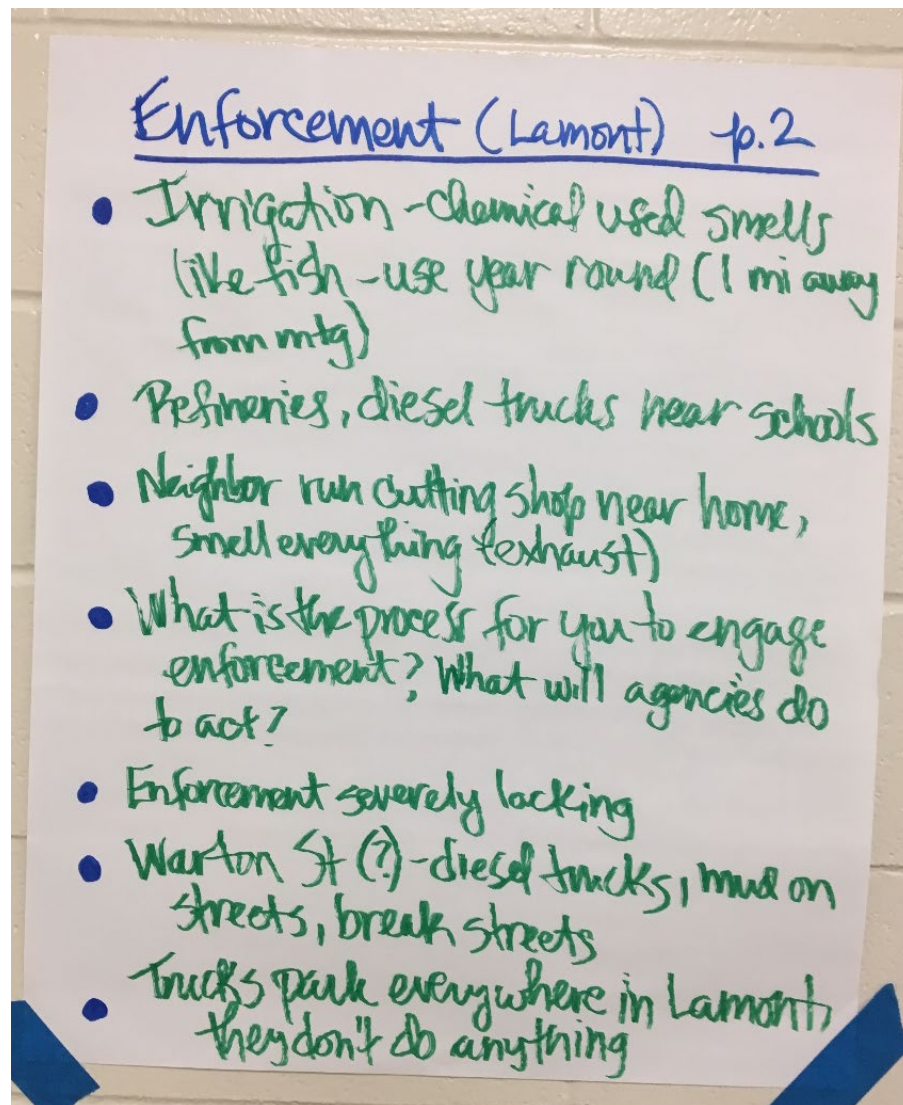 Enforcement (Lamont) p.2
• Irrigation - chemical used smells
like fish - use year round (1 mi away
from mtg)
• Refineries, diesel trucks near schools
• Neighbor run cutting shop near home,
smell everything (exhaust)
• What is the process for you to engage
enforcement? What will agencies do
to act?
• Enforcement severely lacking
• Warton St (?) - diesel trucks, mud on
streets, break streets
• Trucks park everywhere in Lamont,
they don't do anything